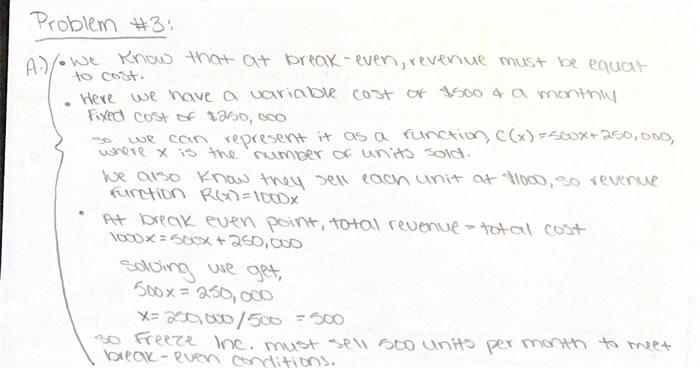 Problem #3:
A.) • We know that at break-even, revenue must be equal
to cost.
• Here we have a variable cost of $500 & a monthly
fixed cost of $250,000
so we can represent it as a function, C(x)=500x+250,000,
where x is the number of units sold.
We also know they sell each unit at $1000, so revenue
function R(x)=1000x
• At break even point, total revenue = total cost
1000x=500x+250,000
solving we get,
500x=250,000
x=250,000/500 = 500
so Freeze Inc. must sell 500 units per month to meet
break-even conditions.